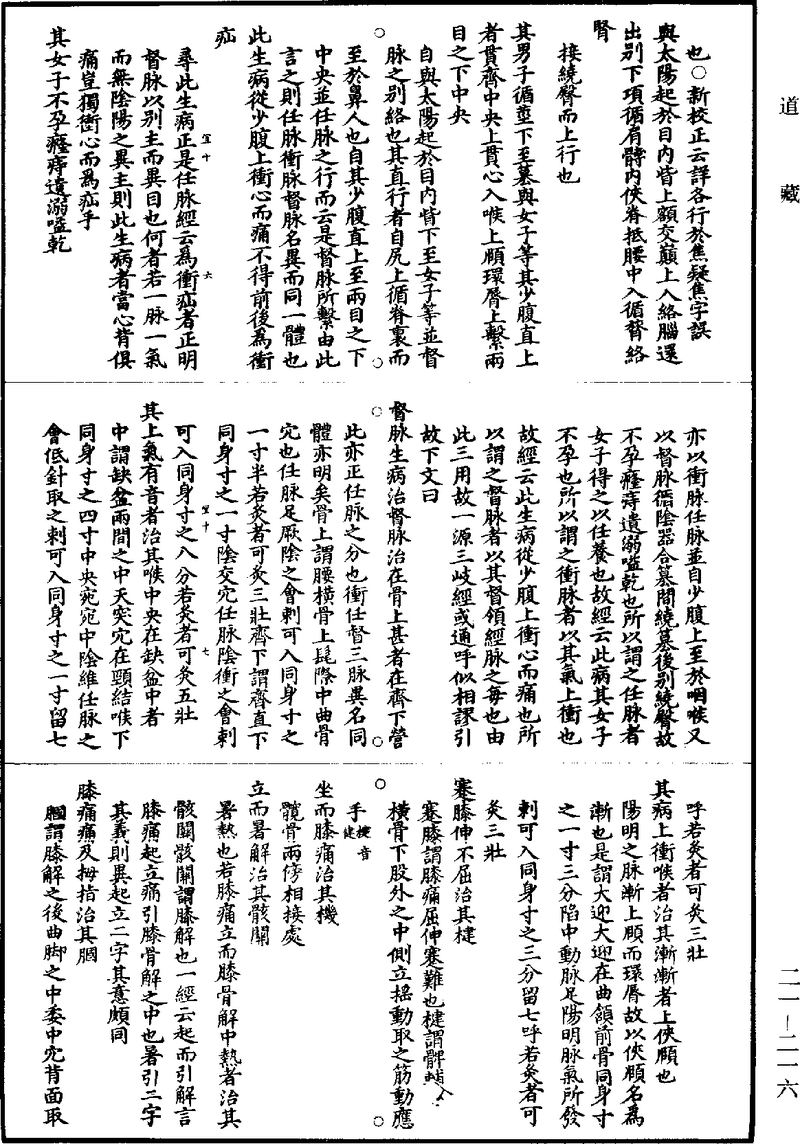 道藏
也○新校正云詳各行於焦疑焦字誤
與太陽起於目內眥上額交巔上入絡腦還
出別下項循肩髆內俠脊抵腰中入循膂絡
腎
接繞臀而上行也
其男子循莖下至篡與女子等其少腹直上
者貫齊中央上貫心入喉上頤環脣上繫兩
目之下中央
自與太陽起於目內眥下至女子等並督
脉之別絡也其直行者自尻上循脊裏而
至於鼻人也自其少腹直上至兩目之下
中央並任脉之行而云是督脉所繫由此
言之則任脉衝脉督脉名異而同一體也
此生病從少腹上衝心而痛不得前後為衝
疝
尋此生病正是任脉經云為衝疝者正明
督脉以別主而異目也何者若一脉一氣
而無陰陽之異主則此生病者當心背俱
痛豈獨衝心而為疝乎
其女子不孕癃痔遺溺嗌乾
亦以衝脉任脉並自少腹上至於咽喉又
以督脉循陰器合篡間繞篡後別繞臀故
不孕癃痔遺溺嗌乾也所以謂之任脉者
女子得之以任養也故經云此病其女子
不孕也所以謂之衝脉者以其氣上衝也
故經云此生病從少腹上衝心而痛也所
以謂之督脉者以其督領經脉之海也由
此三用故一源三歧經或通呼似相謬引
故下文曰
督脉生病治督脉治在骨上甚者在齊下營
此亦正任脉之分也衝任督三脉異名同
體亦明矣骨上謂腰橫骨上髦際中曲骨
穴也任脉足厥陰之會刺可入同身寸之
一寸半若灸者可灸三壯齊下謂齊直下
同身寸之一寸陰交穴任脉陰衝之會刺
可入同身寸之八分若灸者可灸五壯
其上氣有音者治其喉中央在缺盆中者
中謂缺盆兩間之中天突穴在頸結喉下
同身寸之四寸中央宛宛中陰維任脉之
會低針取之刺可入同身寸之一寸留七
呼若灸者可灸三壯
其病上衝喉者治其漸漸者上俠頤也
陽明之脉漸上頤而環脣故以俠頤名為
漸也是謂大迎大迎在曲頷前骨同身寸
之一寸三分陷中動脉足陽明脉氣所發
刺可入同身寸之三分留七呼若灸者可
灸三壯
蹇膝伸不屈治其楗
蹇膝謂膝痛屈伸蹇難也楗謂髀輔
橫骨下股外之中側立搖動取之筋動應
手楗音健
坐而膝痛治其機
髖骨兩傍相接處
立而暑解治其骸關
暑熱也若膝痛立而膝骨解中熱者治其
骸關骸關謂膝解也一經云起而引解言
膝痛起立痛引膝骨解之中也暑引二字
其義則異起立二字其意頗同
膝痛痛及拇指治其膕
膕謂膝解之後曲脚之中委中穴背面取
二一—二一六